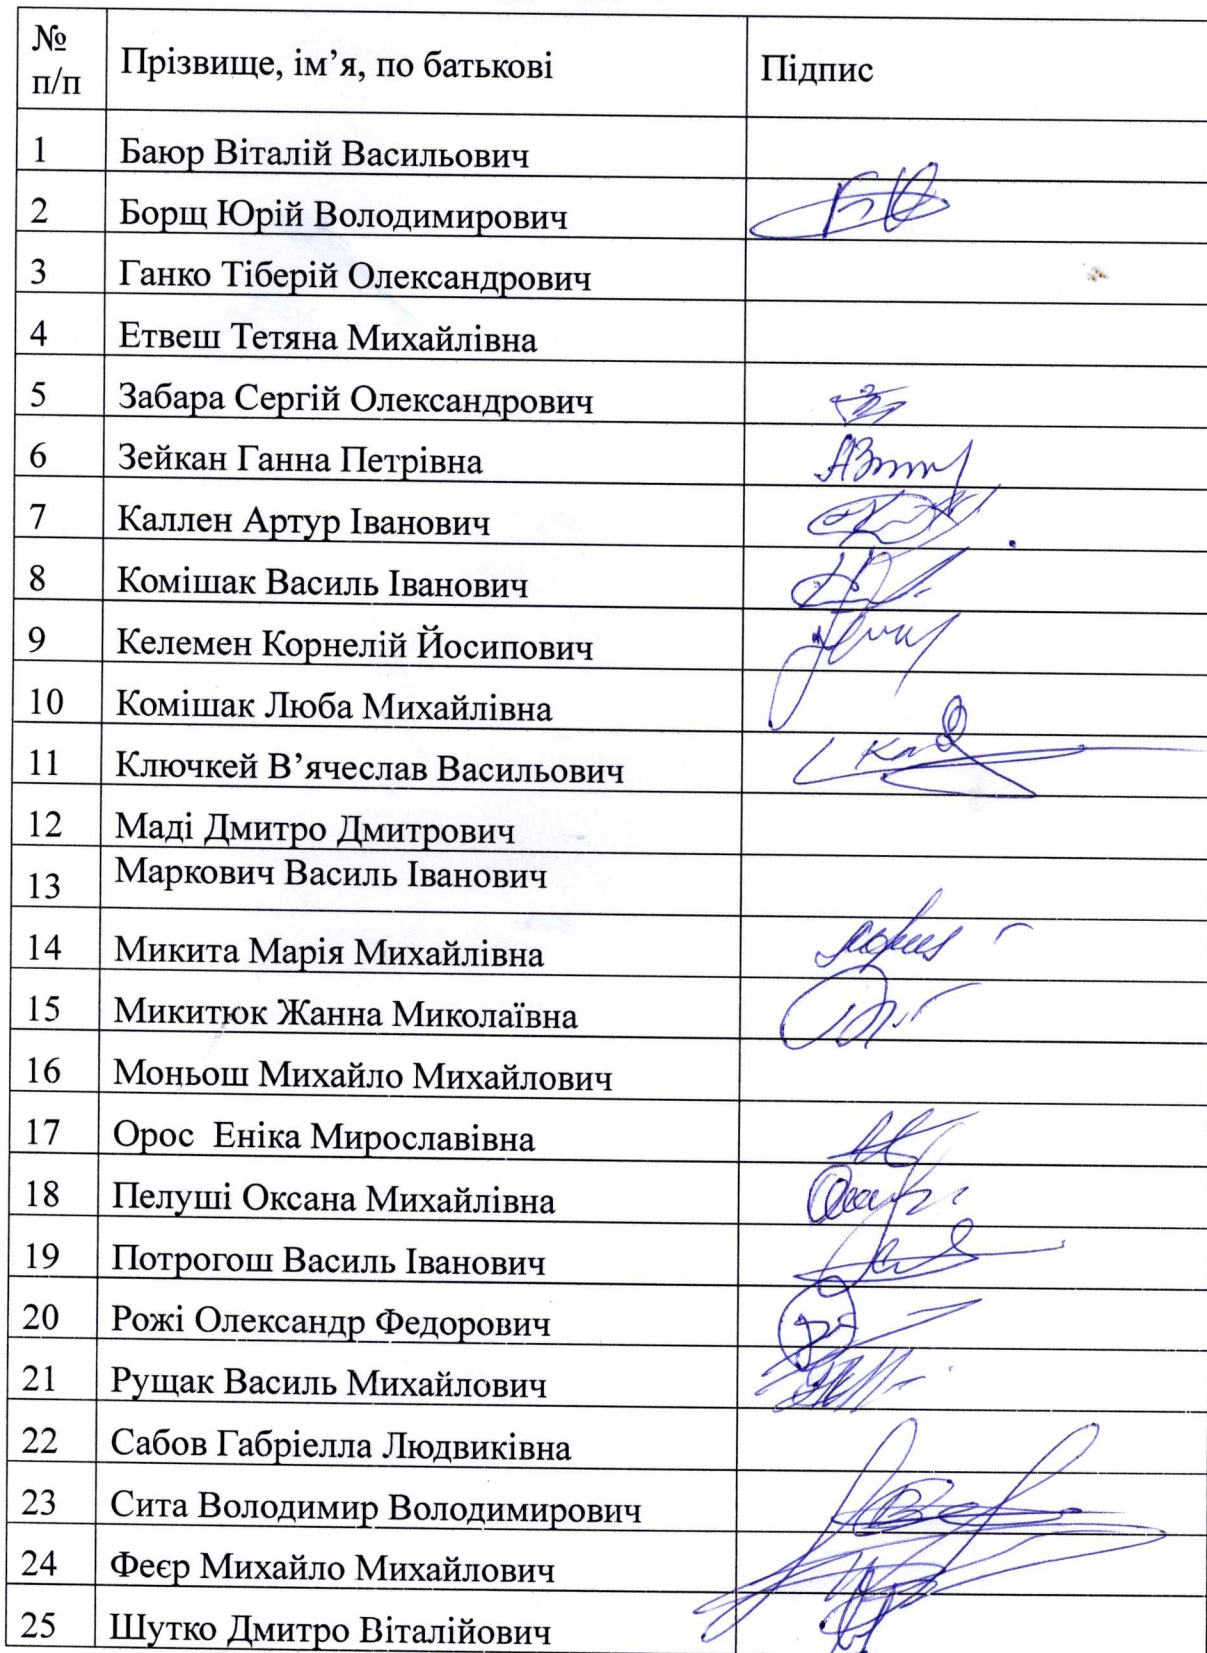 № п/п Прізвище, ім’я, по батькові Підпис
1 Баюр Віталій Васильович
2 Борщ Юрій Володимирович
3 Ганко Тіберій Олександрович
4 Етвеш Тетяна Михайлівна
5 Забара Сергій Олександрович
6 Зейкан Ганна Петрівна
7 Каллен Артур Іванович
8 Комішак Василь Іванович
9 Келемен Корнелій Йосипович
10 Комішак Люба Михайлівна
11 Ключкей В’ячеслав Васильович
12 Маді Дмитро Дмитрович
13 Маркович Василь Іванович
14 Микита Марія Михайлівна
15 Микитюк Жанна Миколаївна
16 Моньош Михайло Михайлович
17 Орос Еніка Мирославівна
18 Пелуші Оксана Михайлівна
19 Потрогош Василь Іванович
20 Рожі Олександр Федорович
21 Рущак Василь Михайлович
22 Сабов Габріелла Людвиківна
23 Сита Володимир Володимирович
24 Феєр Михайло Михайлович
25 Шутко Дмитро Віталійович